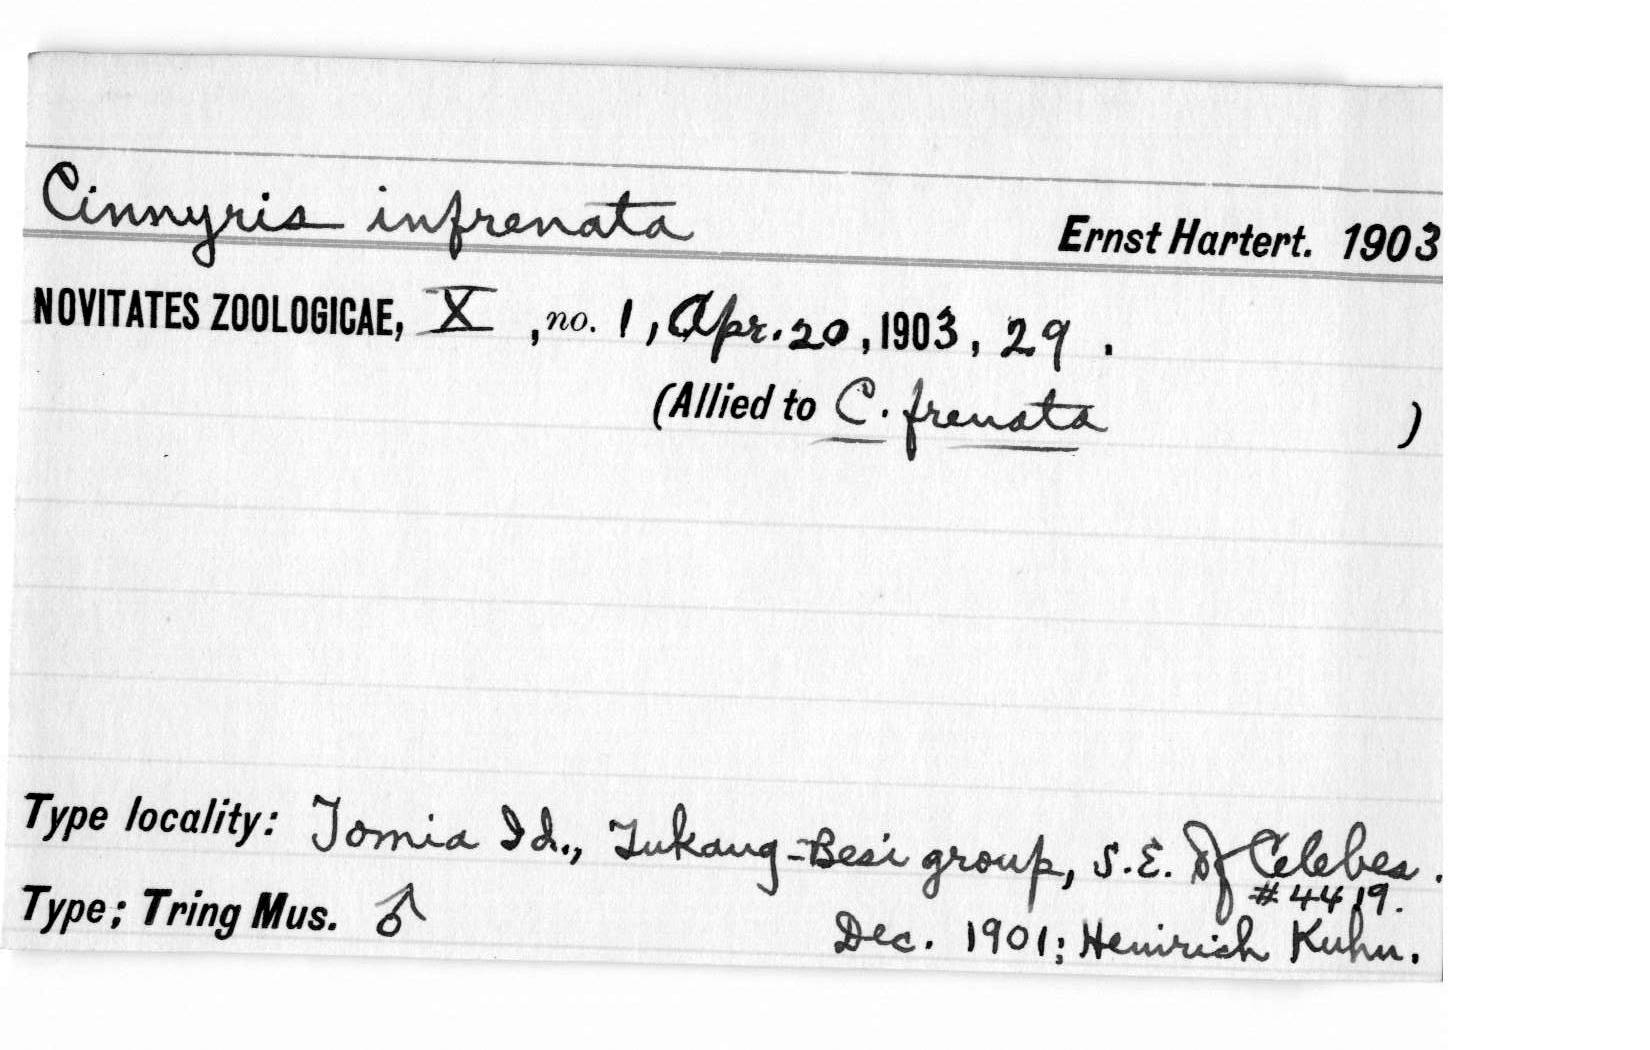 Cinnyris infrenata Ernst Hartert. 1903
NOVITATES ZOOLOGICAE, X , no. 1, Apr. 20, 1903, 29 .
(Allied to C. frenata )
Type locality: Tomia Id., Tukang-Besi group, S.E. of Celebes.
#4419.
Type; Tring Mus. ♂ Dec. 1901; Heinrich Kuhn.